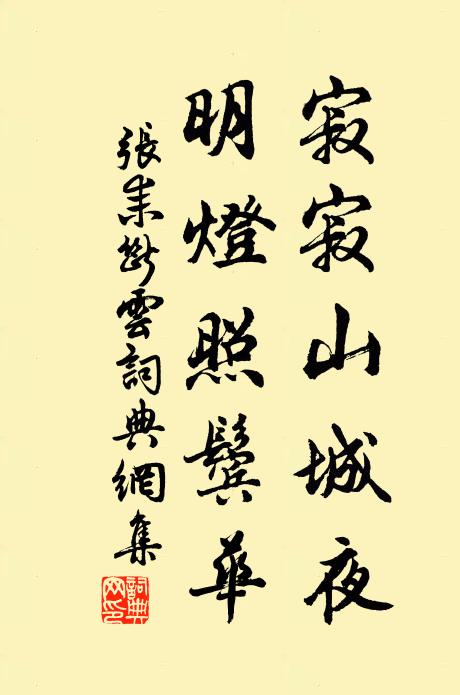 寂寂山城夜
明燈照鬢華
張耒斷雲詞典網集
詞典網印